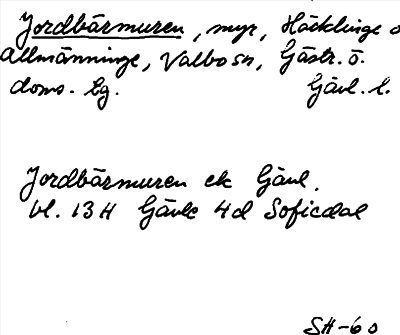 Jordbärmuren, myr, Häcklinge o
Allmänninge, Valbo sn, Gästr. ö.
doms. hg. Gävl. l.
Jordbärmuren ek Gävl.
bl. 13H Gävle 4d Soficdal
SH-60